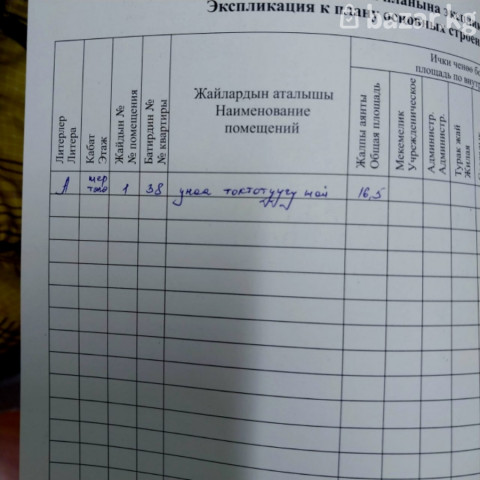 bazar.kg
планына
Экспликация к плану основных строен
Литерлер
Литера
Кабат
Этаж
Жайдын №
№ помещения
Батирдин №
№ квартиры
Жайлардын аталышы
Наименование
помещений
Ички ченөө бо
площадь по внут
Жалпы аянты
Общая площадь
Мекемелик
Учрежденическое
Администр.
Администр.
Турак жай
Жилая
А
жер
төлө
1
38
унаа токтотуучу жай
16,5